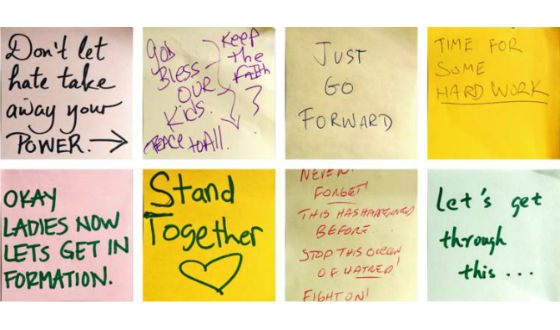 Don't let
hate take
away your
POWER.
God
Bless
OUR
Kids.
Peace to All.
Keep
the
Faith
JUST
GO
FORWARD
TIME FOR
SOME
HARD WORK
OKAY
LADIES NOW
LETS GET IN
FORMATION.
Stand
Together
NEVER
FORGET!
THIS HAS HAPPENED
BEFORE.
STOP THIS
OF HATRED!
FIGHT ON!
Let's get
through
this ...